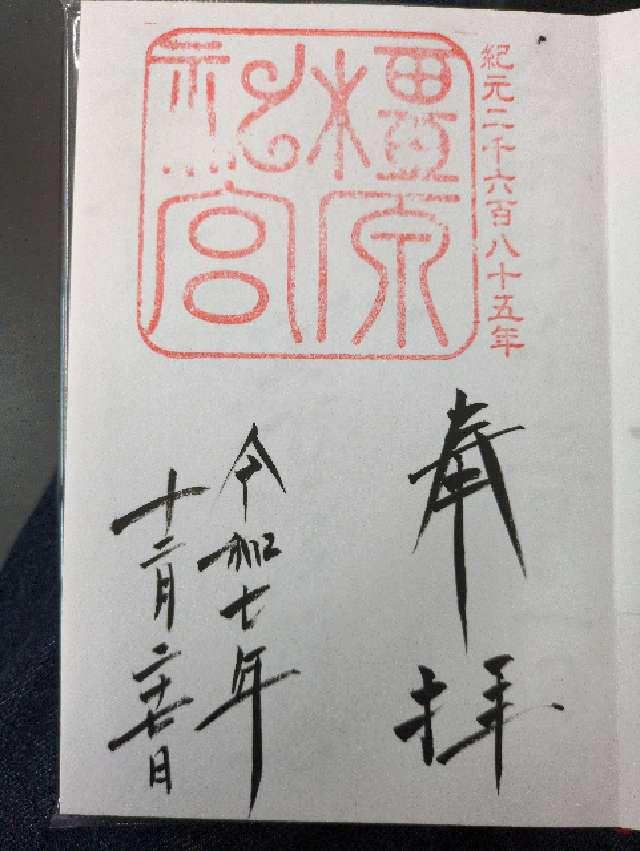 紀元二千六百八十五年
橿原
神宮
奉拝
令和七年
十二月二十七日